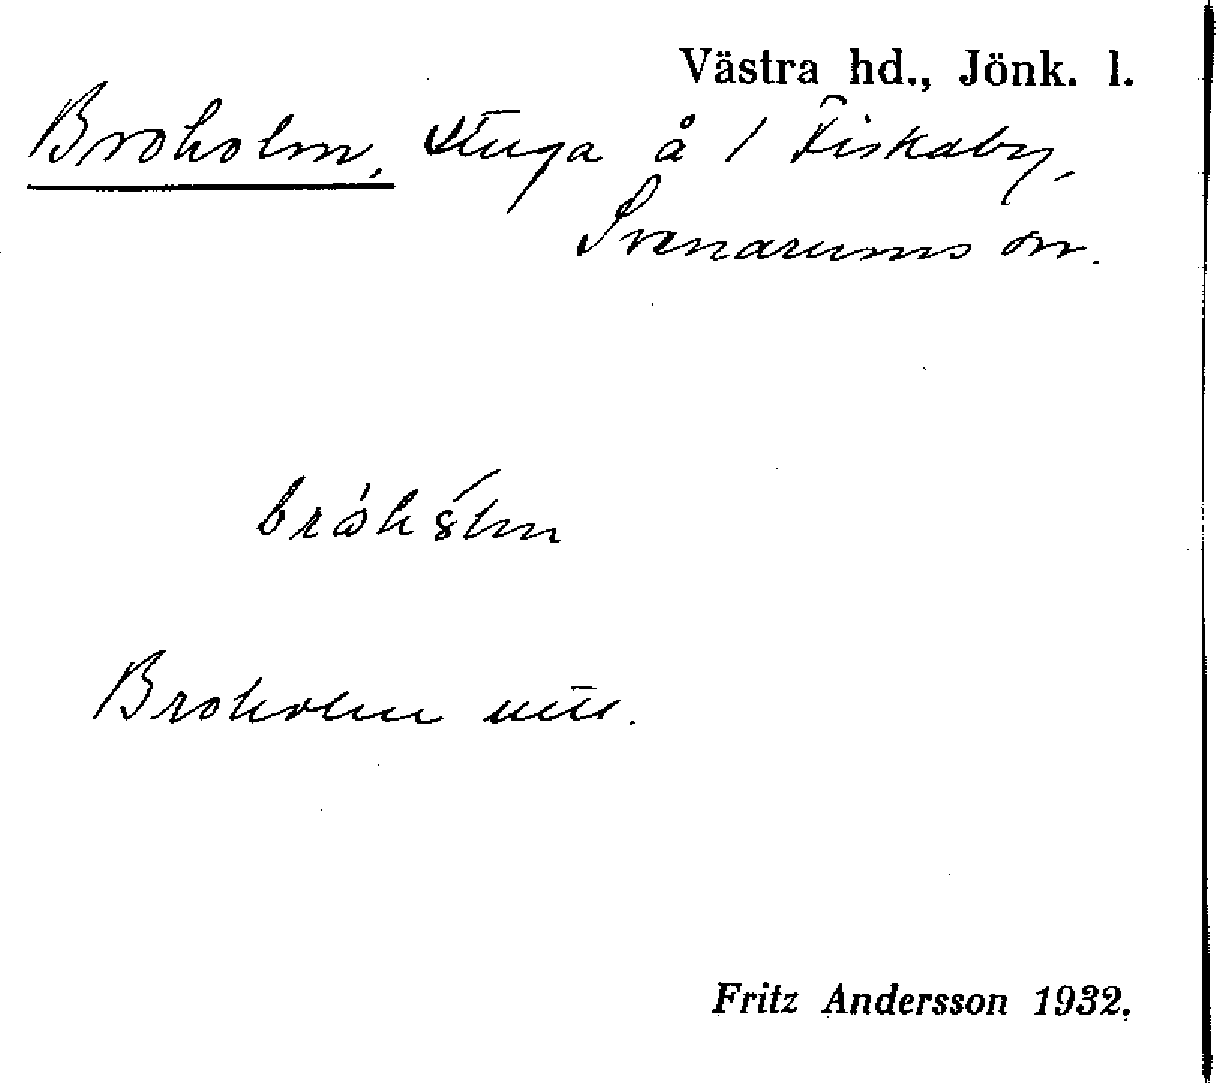 Västra hd., Jönk. l.
Broholm, stuga å 1 Fiskaby,
Svenarums sn.
Broholm uttl.
Fritz Andersson 1932.